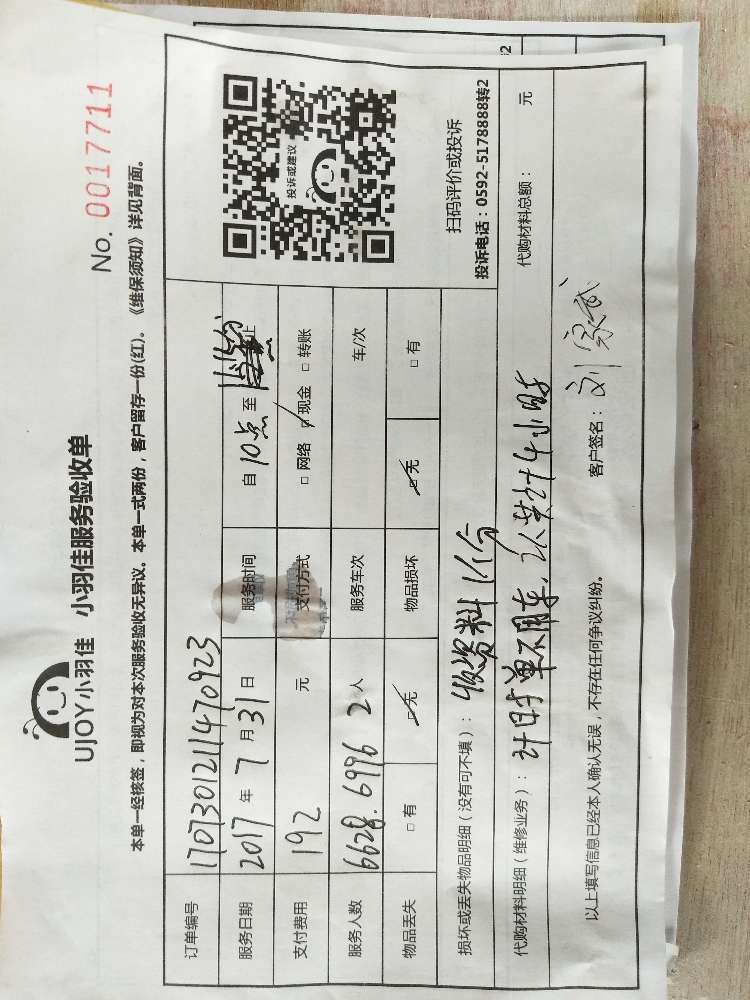 UJOY小羽佳 小羽佳服务验收单
No. 0017711
本单一经核签，即视为对本次服务验收无异议。本单一式两份，客户留存一份(红)。《维保须知》详见背面。
订单编号 1707301211470923
服务日期 2017 年 7 月 31 日 服务时间 自 10点 至 止
支付费用 192 元 支付方式 □ 网络 □ 现金 □ 转账
服务人数 6628.6996 2 人 服务车次 车/次
物品丢失 □ 有 □ 无 物品损坏 □ 无 □ 有
投诉或建议
扫码评价或投诉
投诉电话：0592-5178888转2
损坏或丢失物品明细（没有可不填）： 收资料1份
代购材料明细（维修业务）： 计时单不用车，2人共计4小时 代购材料总额： 元
以上填写信息已经本人确认无误，不存在任何争议纠纷。 客户签名： 刘家武